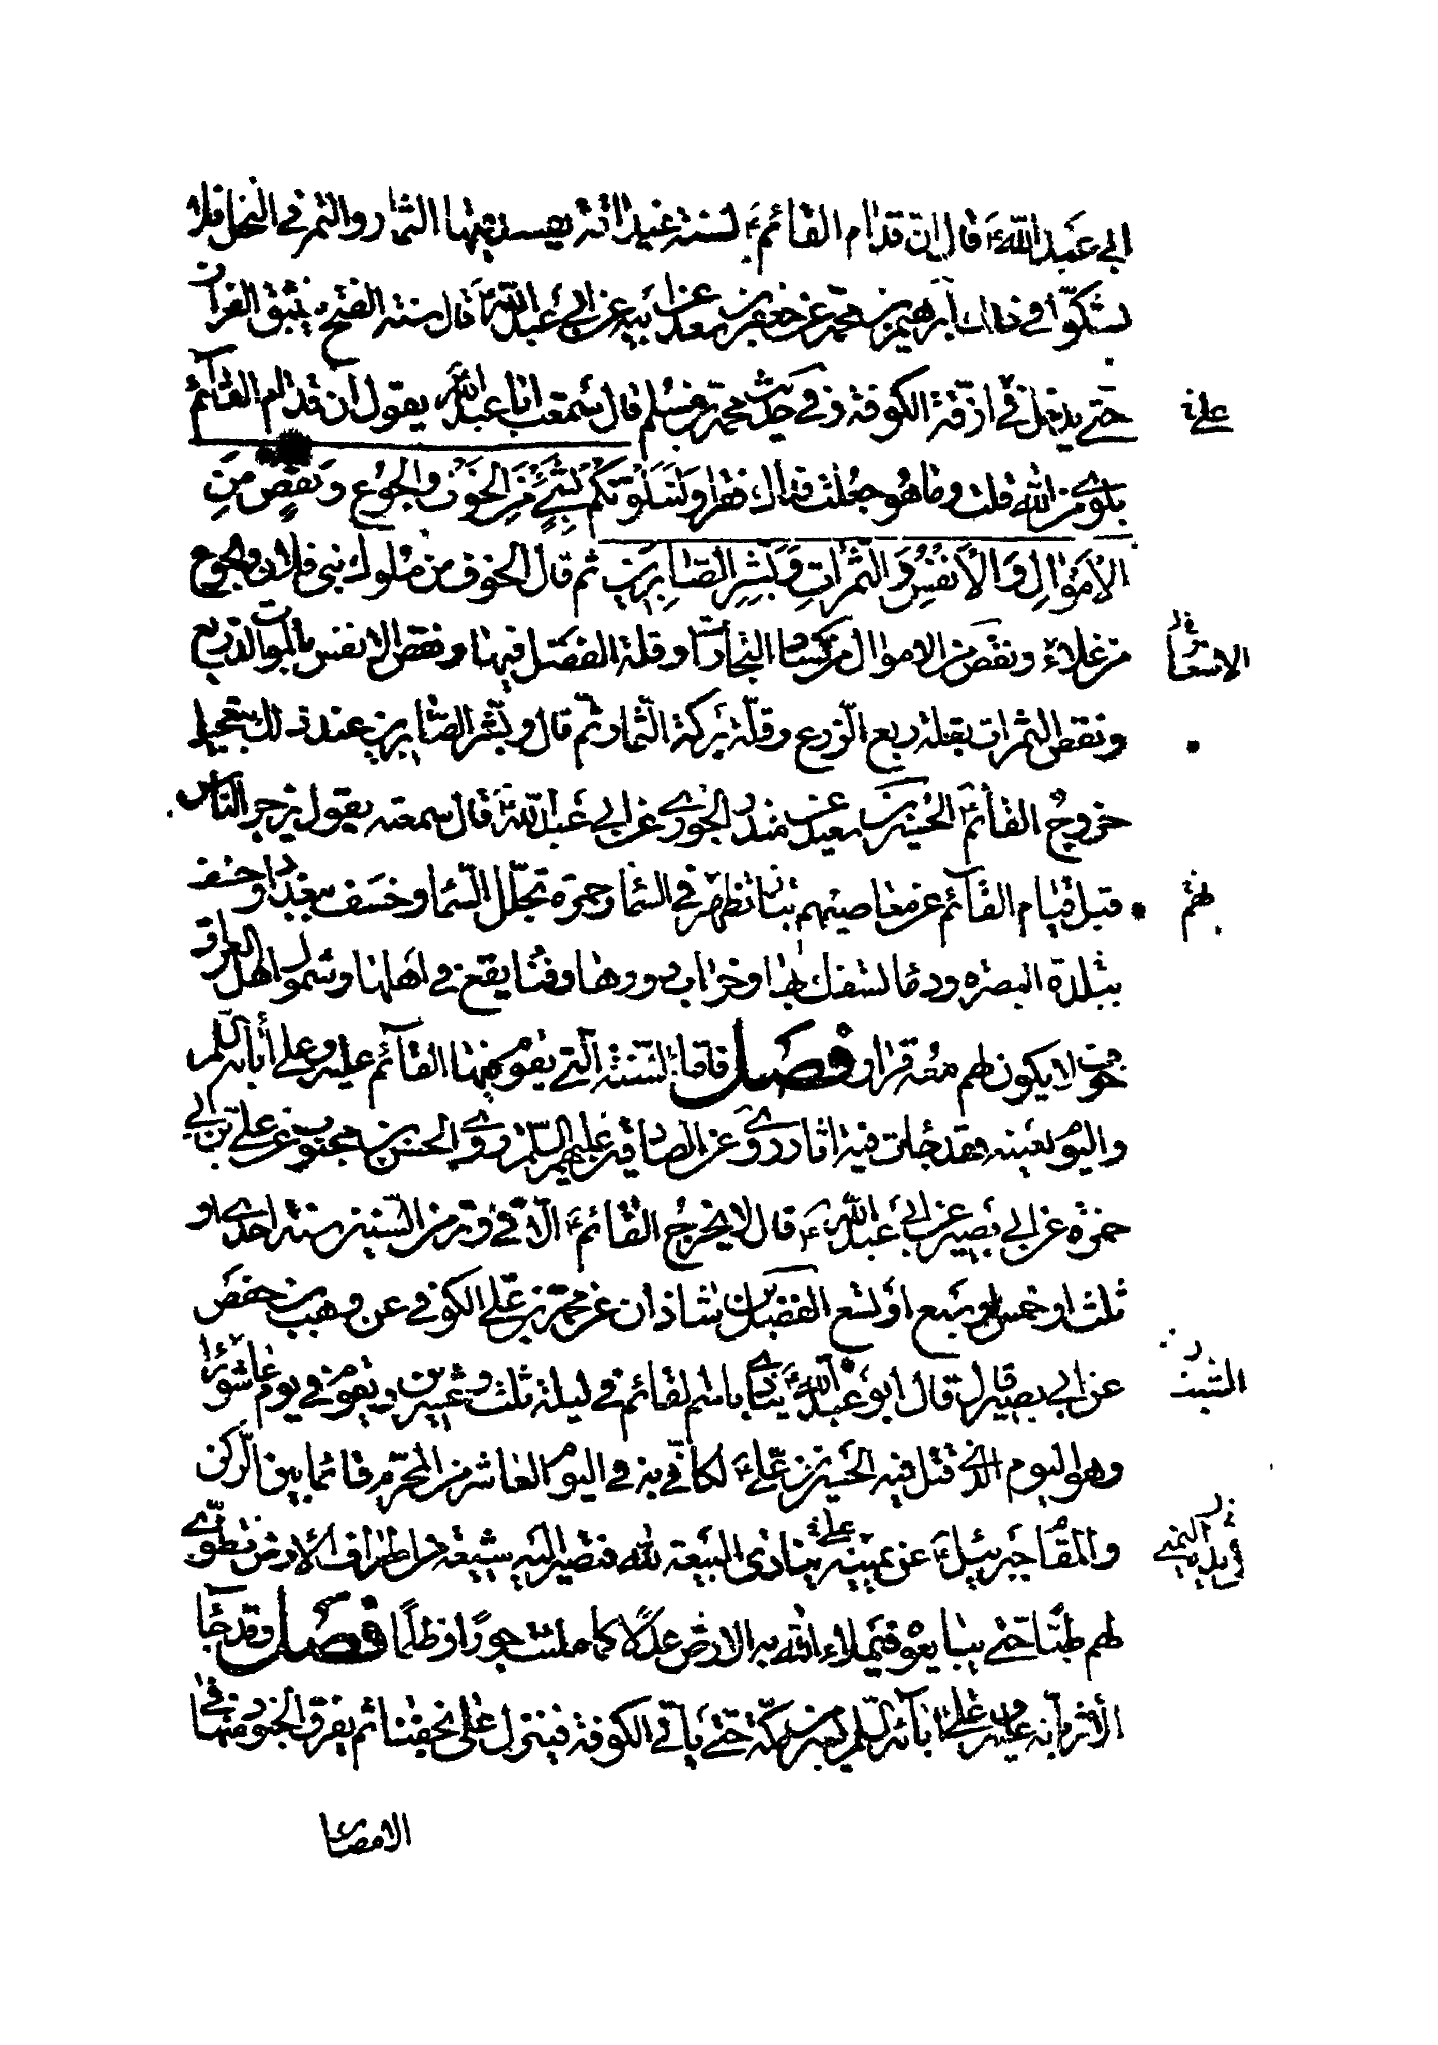 ابي عبد الله ع قال ان قدام القائم ع لسنة غيداقة يفسد فيها الثمار والتمر في النخل فلا
تشكوا في ذلك ابرهيم بن محمد عن جعفر بن سعد عن ابيه عن ابي عبد الله ع قال سنة الفتح ينبثق الفرات
حتى يدخل في ازقة الكوفة وفي حديث محمد بن مسلم قال سمعت ابا عبد الله يقول ان قدام القائم
بلوى من الله قلت وما هو جعلت فداك فقرا ولنبلونكم بشئ من الخوف والجوع ونقص من
الاموال والانفس والثمرات وبشر الصابرين ثم قال الخوف من ملوك بني فلان والجوع
من غلاء ونقص من الاموال من كساد التجارات وقلة الفضل فيها ونقص الانفس بالموت الذريع
ونقص الثمرات بقلة ريع الزرع وقلة بركة الثمار ثم قال وبشر الصابرين عند ذلك بتعجيل
خروج القائم ع الحسين بن سعيد عن منذر الجوزي عن ابي عبد الله ع قال سمعته يقول يزجر الناس
قبل قيام القائم عن معاصيهم بنار تظهر في السماء وحمرة تجلل السماء وخسف ببغداد وخسف
ببلدة البصرة ودماء تسفك بها وخراب دورها وفناء يقع في اهلها وشمول اهل العراق
خوف لا يكون لهم معه قرار فصل فاما السنة التي يقوم فيها القائم عليه وعلى آبائه السلم
واليوم بعينه فقد جاءت فيه اثار روى عن الصادقين عليهم السلم روى الحسن بن محبوب عن علي بن ابي
حمزة عن ابي بصير عن ابي عبد الله ع قال لا يخرج القائم ع الا في وتر من السنين سنة احدى او
ثلث او خمس او سبع او تسع الفضل بن شاذان عن محمد بن علي الكوفي عن وهب بن حفص
عن ابي بصير قال قال ابو عبد الله ع ينادى باسم القائم في ليلة ثلث وعشرين ويقوم في يوم عاشوراء
وهو اليوم الذي قتل فيه الحسين بن علي ع لكاني به في اليوم العاشر من المحرم قائما بين الركن
والمقام جبرئيل ع عن يمينه ينادى البيعة لله فتصير اليه شيعته من اطراف الارض تطوى
لهم طيا حتى يبايعوه فيملاء الله به الارض عدلا كما ملئت جورا وظلما فصل وقد جاء
الاثر انه عليه وعلى آبائه السلم يسير من مكة حتى ياتي الكوفة فينزل على نجفها ثم يفرق الجنود منها في
الامصار